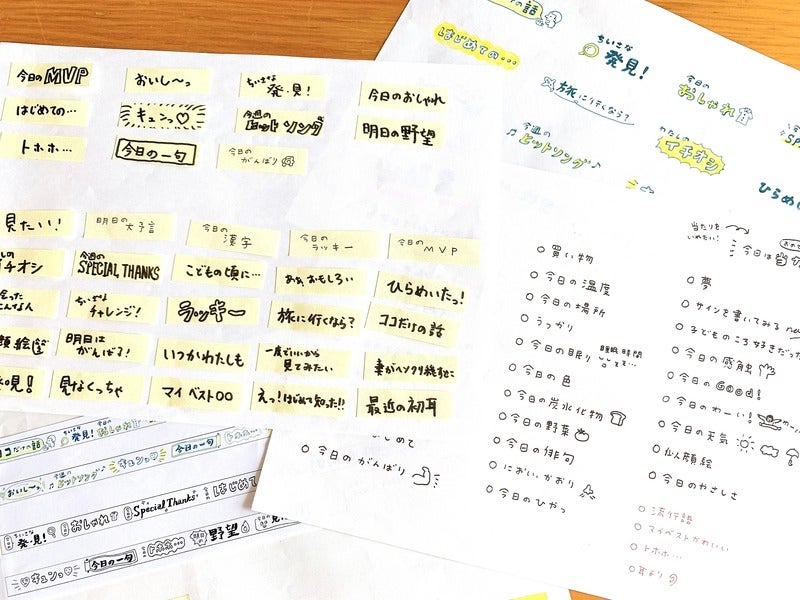 今日のMVP
おいし〜っ
ちいさな発・見!
今日のおしゃれ
はじめての…
キュンっ♡
今週のヒットソング
明日の野望
トホホ…
今日の一句
今日のがんばり
見たい!
明日の大予言
今日の漢字
今日のラッキー
今日のMVP
イチオシ
今週のSPECIAL THANKS
こどもの頃に…
ああ、おもしろい
ひらめいたっ!
ちいさなチャレンジ!
ラッキー
旅に行くなら?
ココだけの話
明日はがんばる!
いつかわたしも
一度でいいから見てみたい
見!
見なくっちゃ
マイベスト○○
えっ!はじめて知った!!
最近の初耳
の話
はじめての…
ちいさな発見!
旅に行くなら?
今日のおしゃれ
今週のヒットソング♪
わたしのイチオシ
ひらめ
当たりをいめたい!
今日は
○買い物
○今日の温度
○今日の場所
○うっかり
○今日の眠り 睡眠時間
○今日の色
○今日の炭水化物
○今日の野菜
○今日の俳句
○におい、かおり
○今日のひやっ
○夢
○サインを書いてみる
○子どものころ好きだった
○今日の感触
○今日のGood!
○今日のわーい!
○今日の天気
○仙人顔絵
○今日のやさしさ
○流行語
○マイベストかわいい
○トホホ…
○耳より
はじめて
○今日のがんばり
ココだけの話
ちいさな発見!
今日のおしゃれ
おいし〜っ
今週のヒットソング
キュンっ♡
今日の一句
トホホ…
ちいさな発見!
今日のおしゃれ
Special Thanks
はじめて
♡キュンっ♡
今日の一句
トホホ…
明日の野望